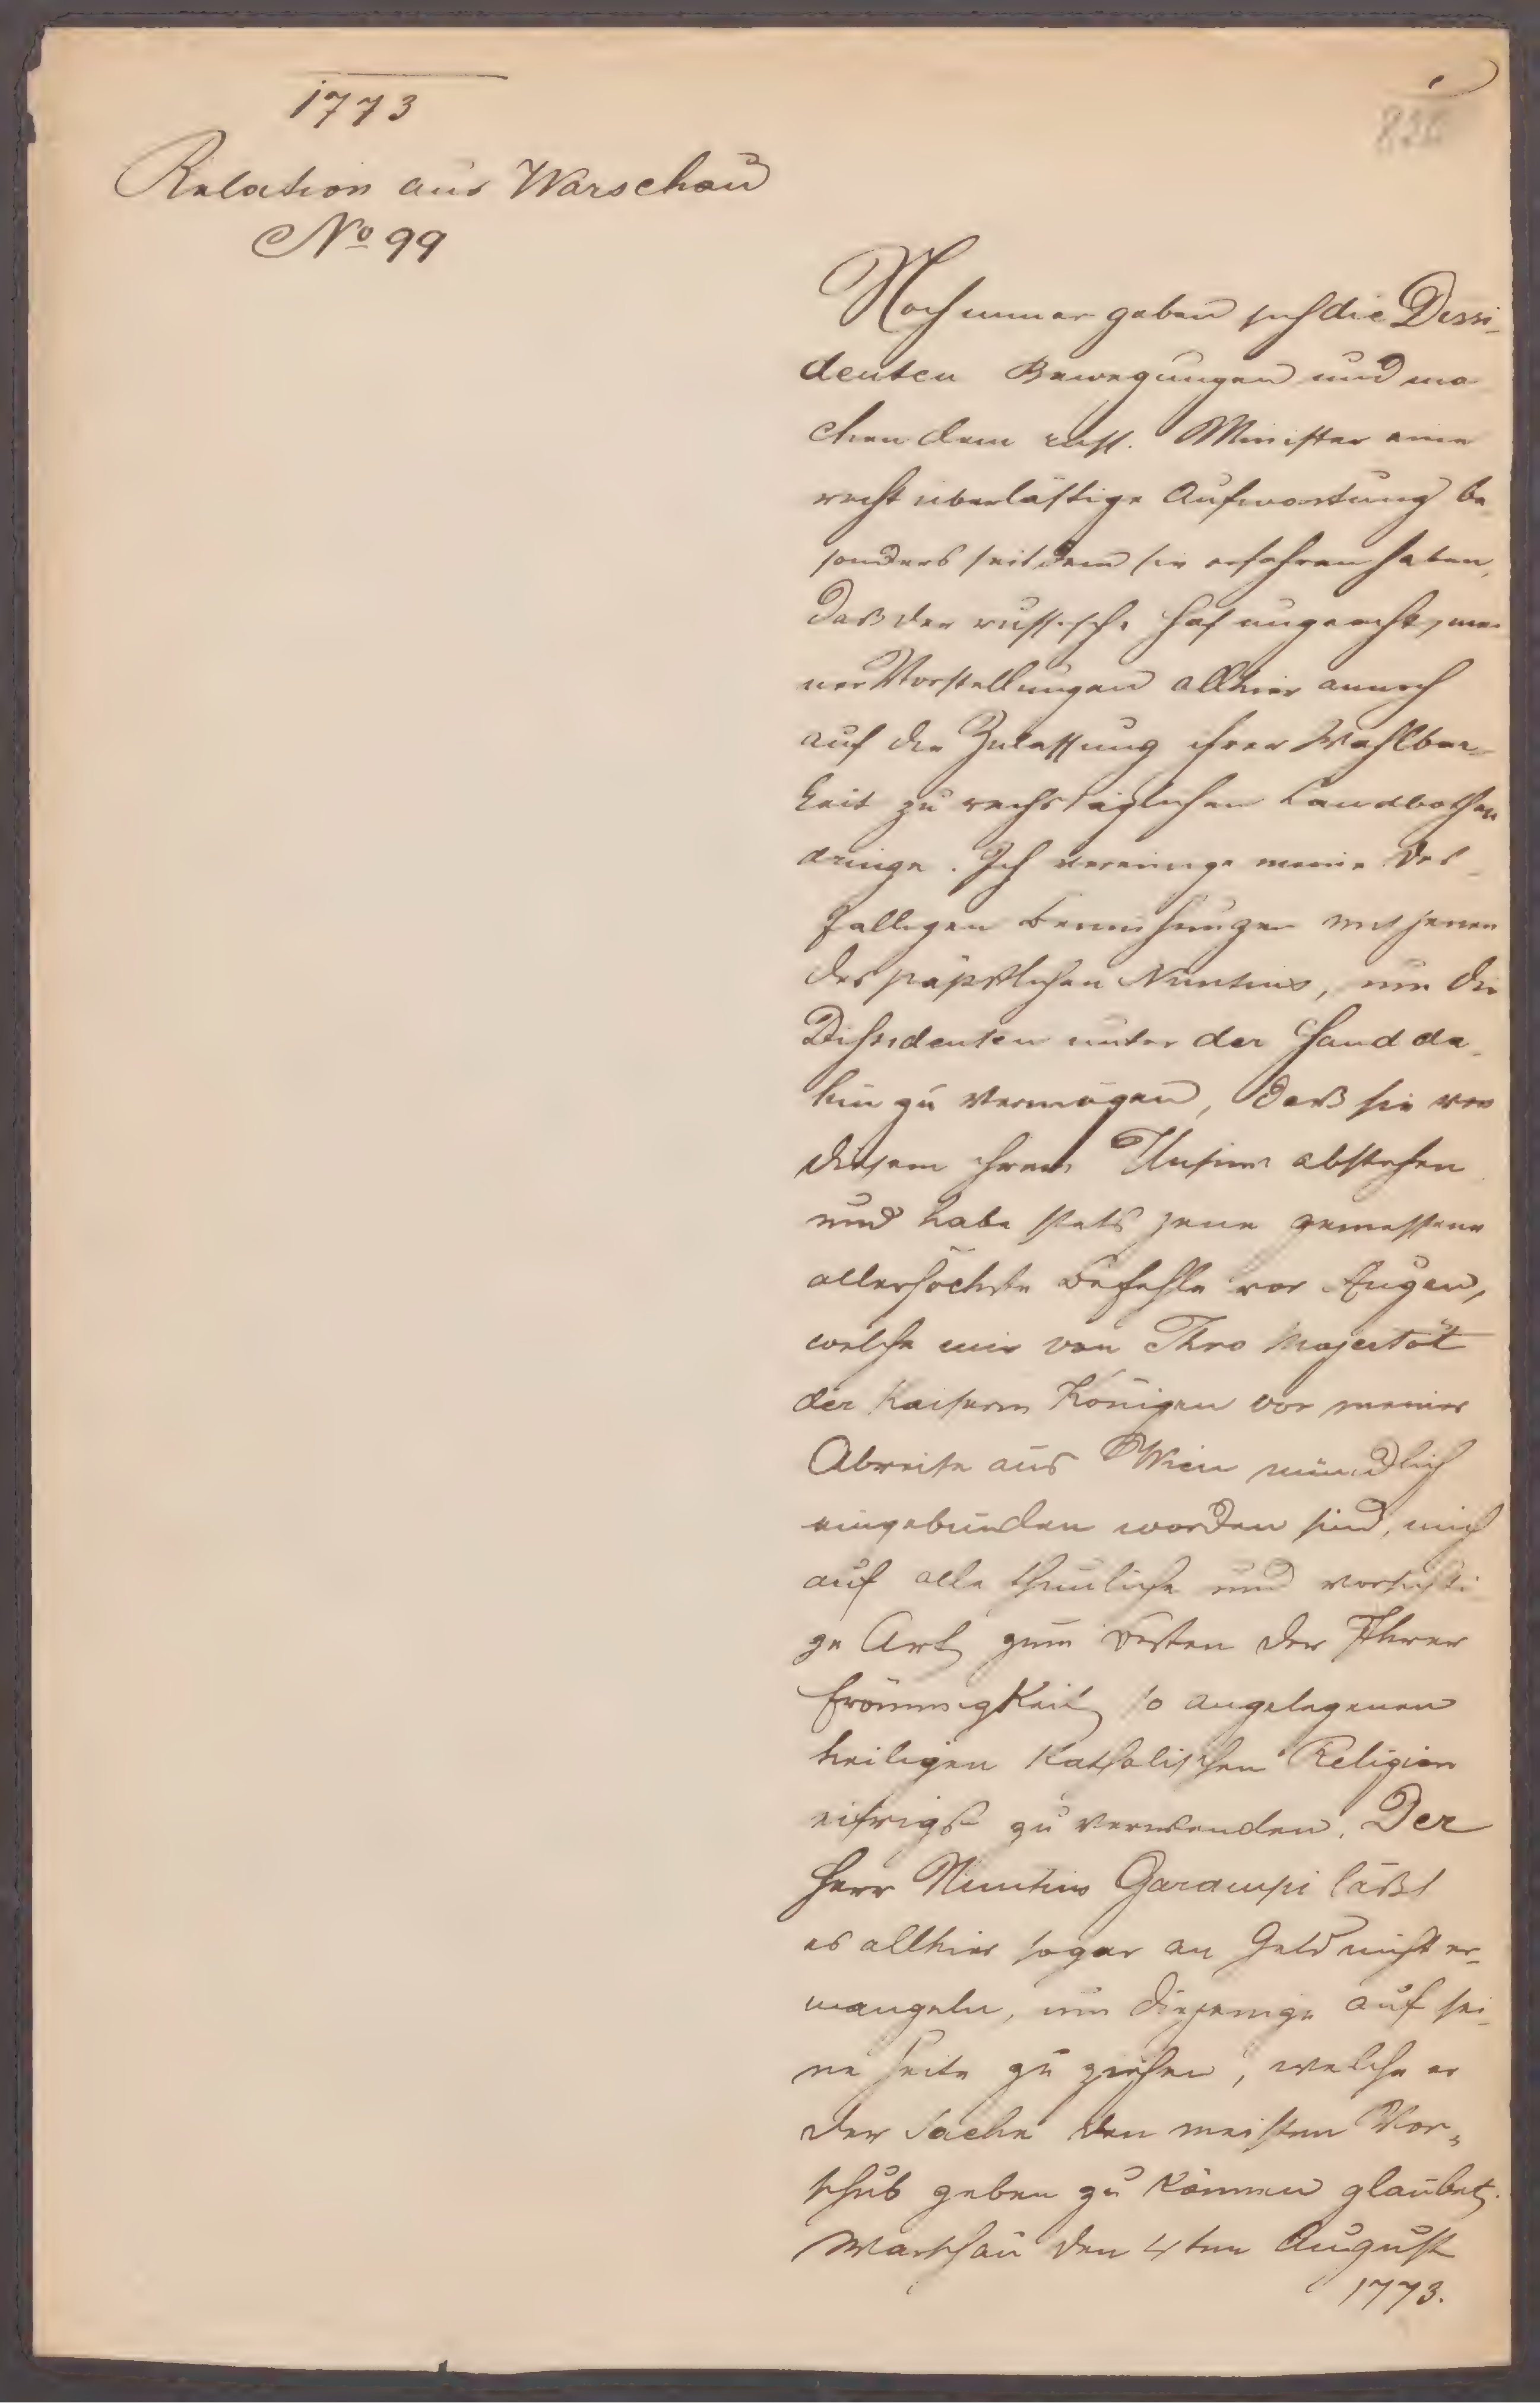 1773
Relation aus Warschau
No 99
Noch immer geben sich die Dissi-
denten Bewegungen und ma
chen dem russ. Minister eine
recht überlästige Aufwartung be
sonders seitdem sie erfahren haben,
daß der russische Hof ungeacht mei
ner Vorstellungen allhier annoch
auf die Zulassung ihrer Wahlbar-
keit zu reichstäglichen Landbothen
dringe. Ich vereinige meine des-
falligen Bemühungen mit jenen
des päpstlichen Nuntius, um die
Dissidenten unter der Hand da-
hin zu vermögen, daß sie von
diesem ihrem Unsinn abstehen
und habe stets jene gemessene
allerhöchste Befehle vor Augen,
welche mir von Ihro Majestät
der Kaiserin Königen vor meiner
Abreise aus Wien mündlich
eingebunden worden sind, mich
auf alle thunliche und vorsichti
ge Art zum Besten der Ihrer
Frömmigkeit so angelegenen
heiligen Katholischen Religion
eifrigst zu verwenden. Der
Herr Nuntius Garampi läßt
es allhier sogar an Geld nicht er-
mangeln, um diejenige auf sei-
ne Seite zu ziehen, welche er
der Sache den meisten Vor-
schub geben zu können glaubet.
Warschau den 4ten August
1773.